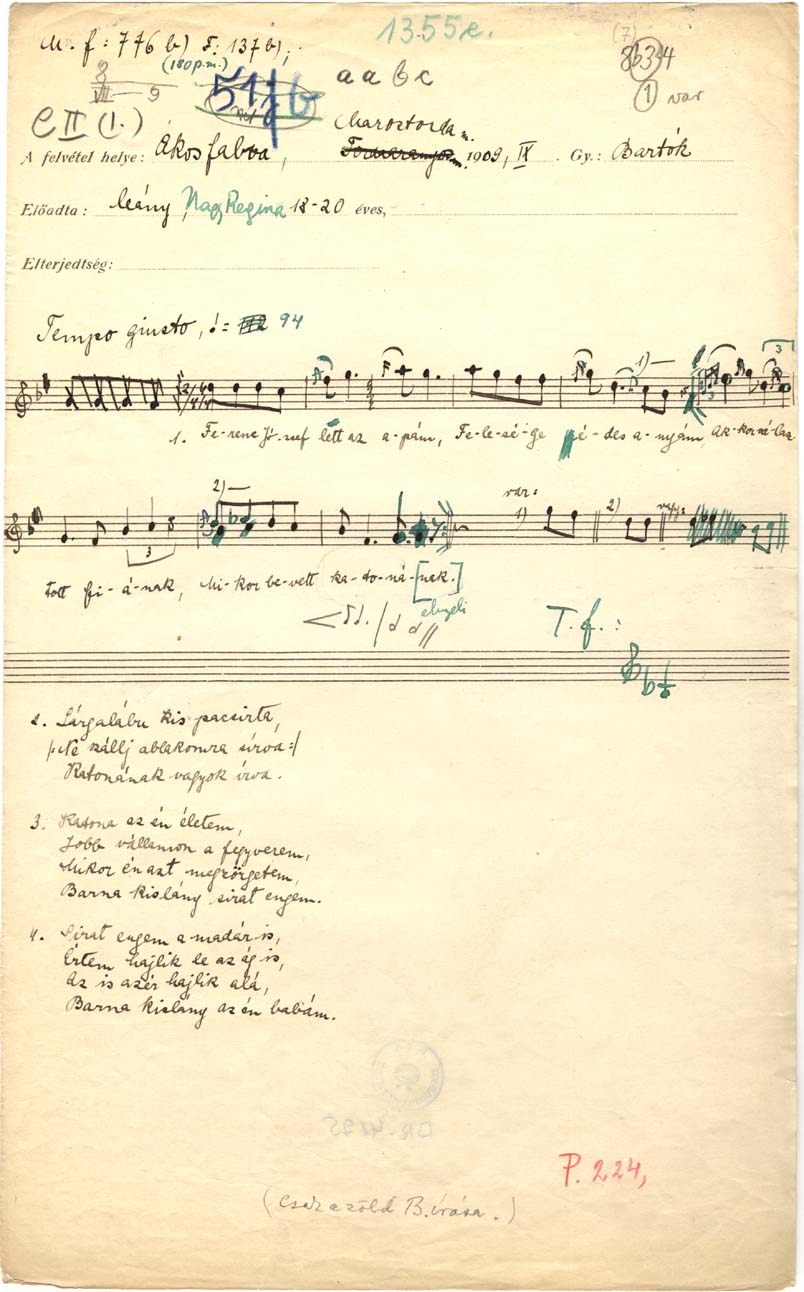 1355e.
M. f: 776 b) F: 137 b);
(180 p.m.)
(7)
8
VII — 9
a a b c
1 var
C II (1.)
Marostorda m.
A felvétel helye: Ákosfalva, 1909, IX. Gy.: Bartók
Előadta: leány, Nagy Regina 18-20 éves,
Elterjedtség:
Tempo giusto, = 94
1)
3
1. Fe-renc Jó-zsef lett az a-pám, Fe-le-sé-ge é-des a-nyám,
2)
3
var: 1) 2)
tott fi-á-nak, Mi-kor be-vett ka-to-ná-[nak.]
elnyeli
T. f.:
2. Sárgalábu kis pacsirta,
/:Ne szállj ablakomra sírva:/
Katonának vagyok írva.
3. Katona az én életem,
Jobb vállamon a fegyverem,
Mikor én azt megzörgetem,
Barna kislány sirat engem.
4. Sirat engem a madár is,
Értem hajlik le az ág is,
Az is azér hajlik alá,
Barna kislány az én babám.
P. 224,
(Csak a zöld B. írása.)